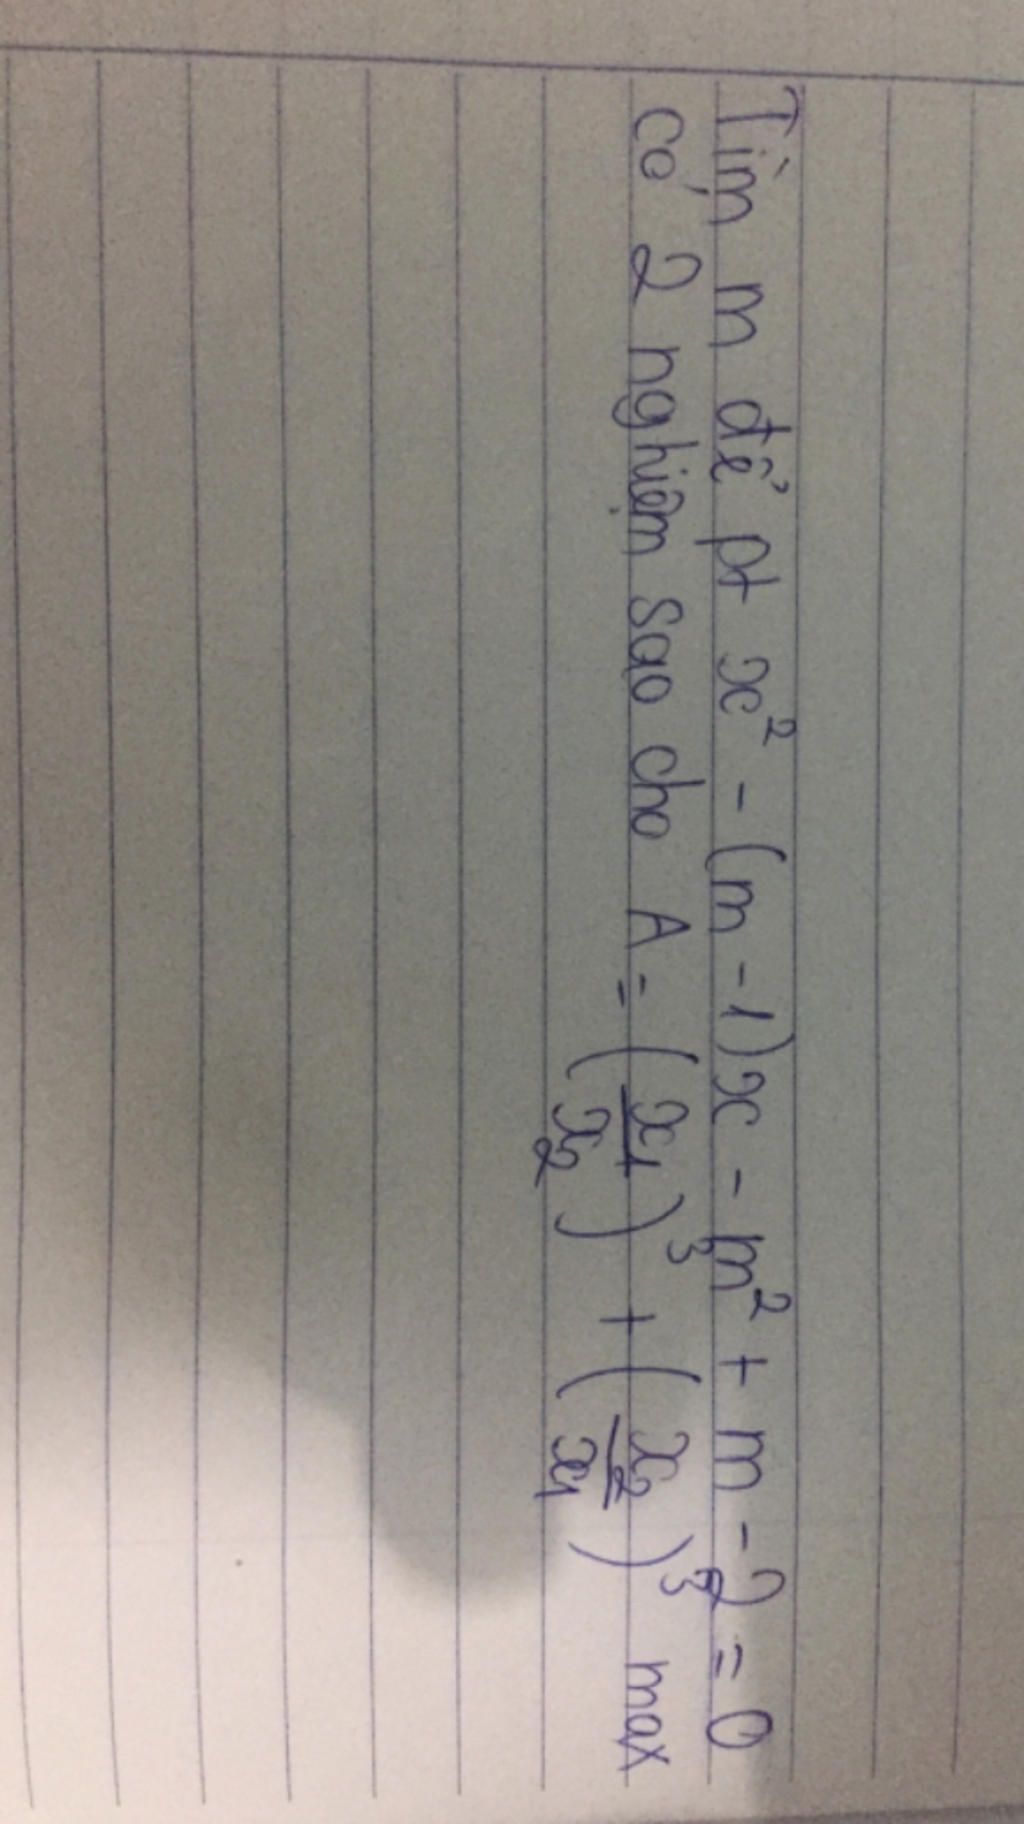 Tìm m để pt x² - (m - 1)x - m² + m - 2 = 0
có 2 nghiệm sao cho A = (x₁/x₂)³ + (x₂/x₁)³ max